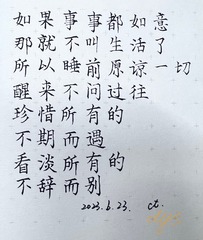 如果事事都如意
那就不叫生活了
所以睡前原谅一切
醒来不问过往
珍惜所有的
不期而遇
看淡所有的
不辞而别
2023.6.23.